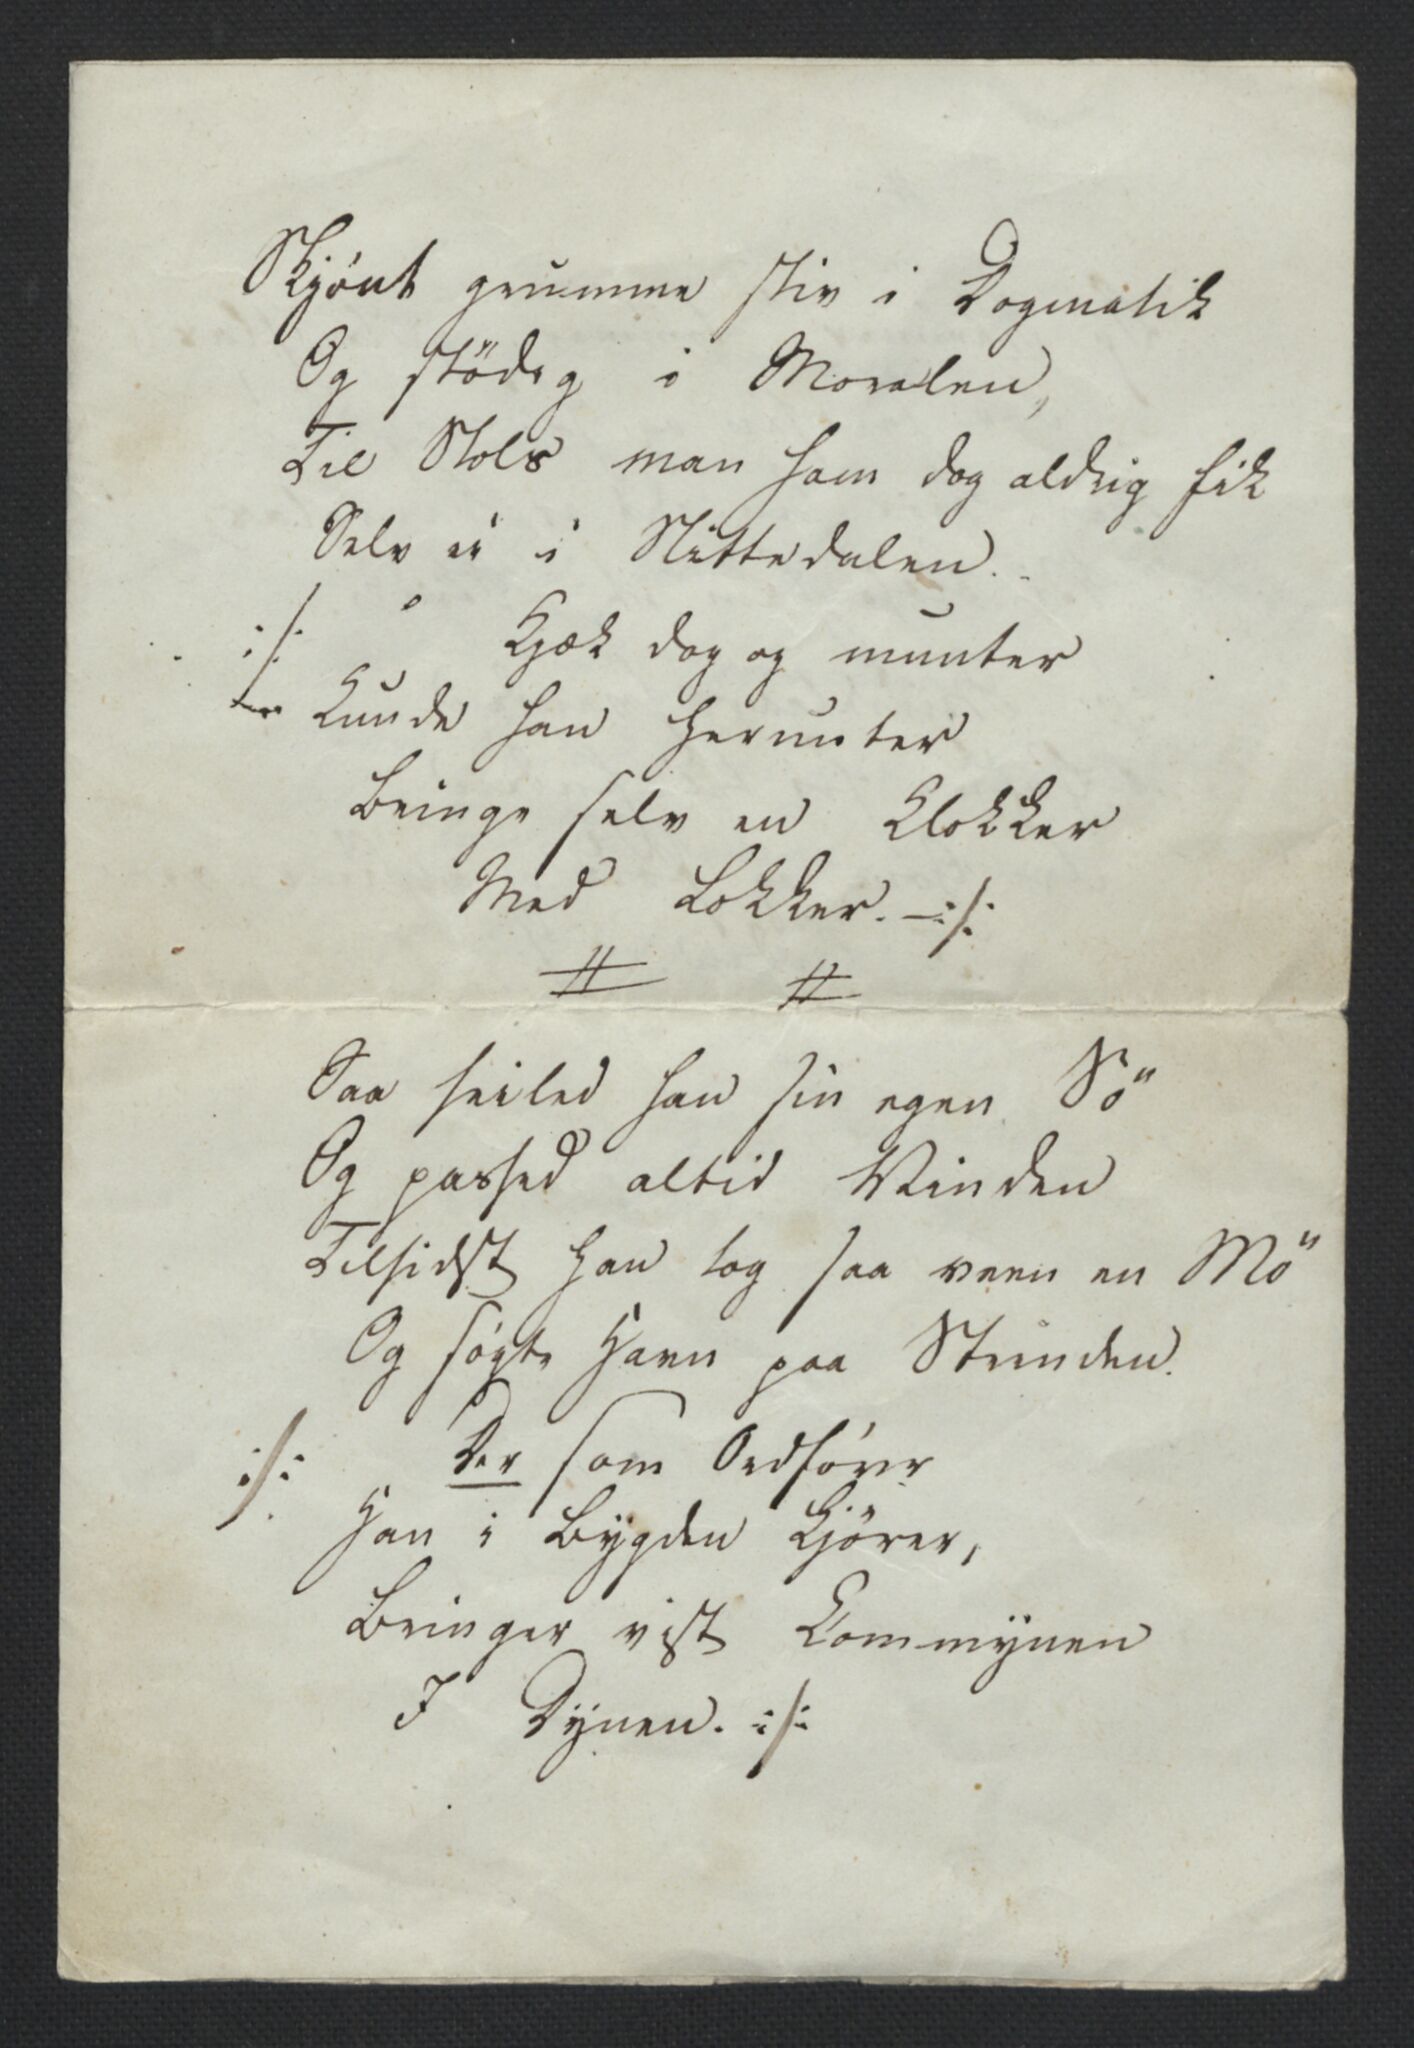 Skjönt grumme stiv i Dogmatik
Og stödig i Moralen,
Til Stols man ham dog aldrig fik
Selv ei i Nittedalen.
:/: Kjæk dog og munter
Kunde han herunter
Bringe selv en Klokker
Med Lokker. :/:
# #
Saa seiled han sin egen Sö
Og passed altid Vinden
Tilsidst han tog saa veen en Mö
Og sögte Havn paa Strinden.
:/: Der som Ordförer
Han i Bygden kjörer,
Bringer vist Commynen
I Dynen. :/: